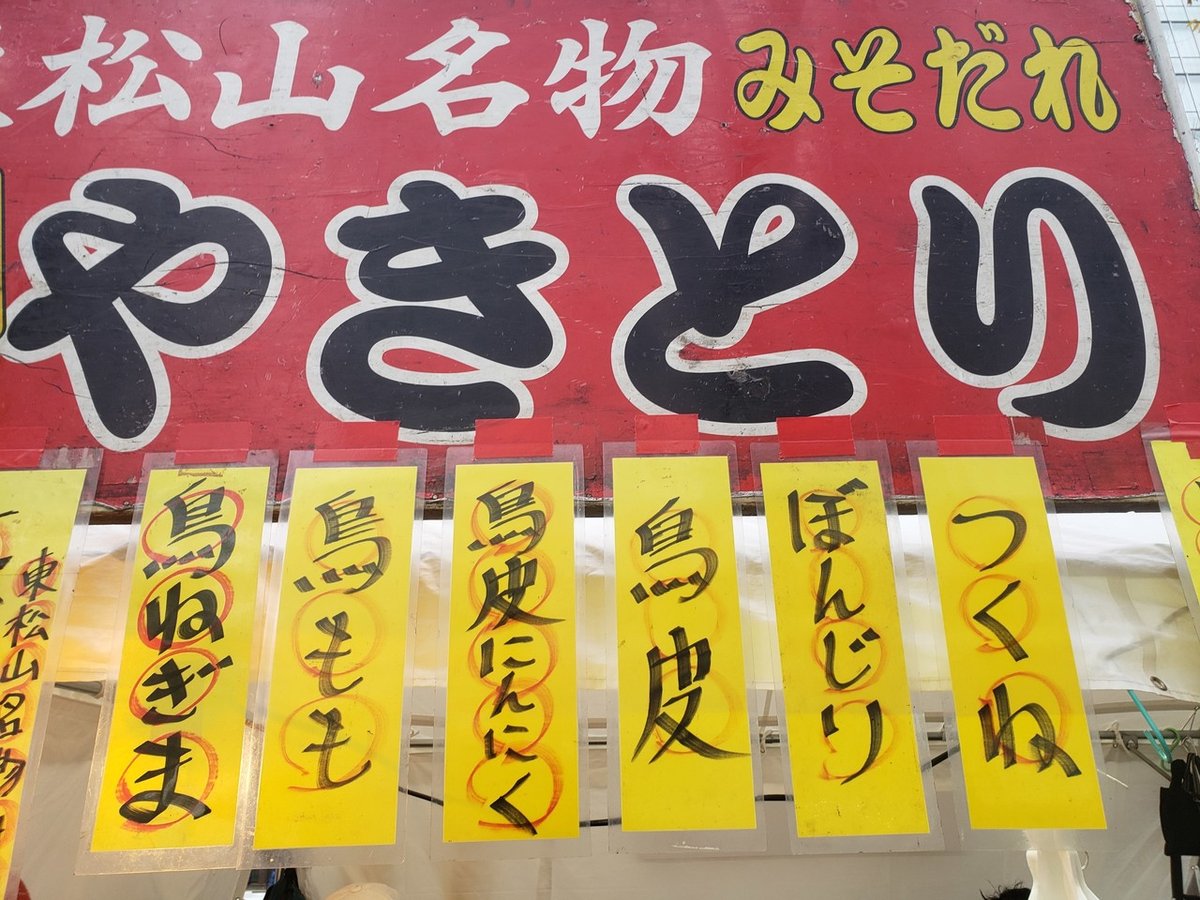 松山名物 みそだれ
やきとり
東松山名物
鳥ねぎま
鳥もも
鳥皮にんにく
鳥皮
ぼんじり
つくね